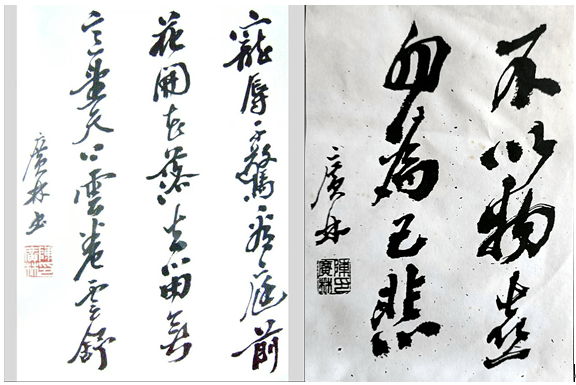 寵辱不驚看庭前
花開花落去留無
意望天上雲卷雲舒
廣林書
陳印廣林
不以物喜
為己悲
廣林
陳印廣林